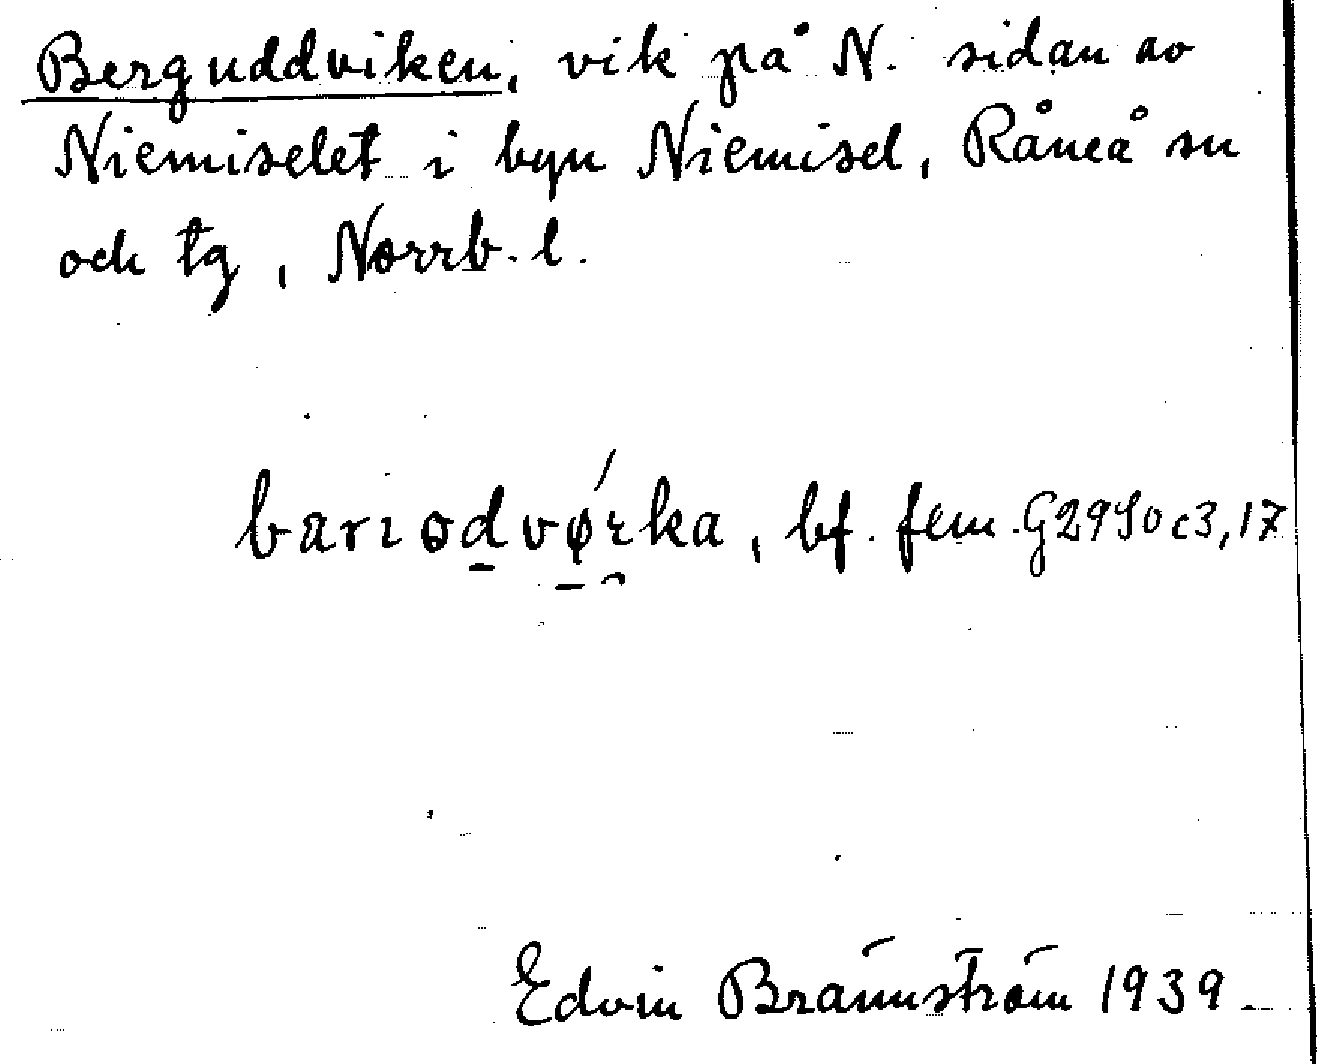 Berguddviken, vik på N. sidan av
Niemiselet i byn Niemisel, Råneå sn
och tg, Norrb. l.
bf. fem. G2950c3,17
Edvin Brännström 1939.